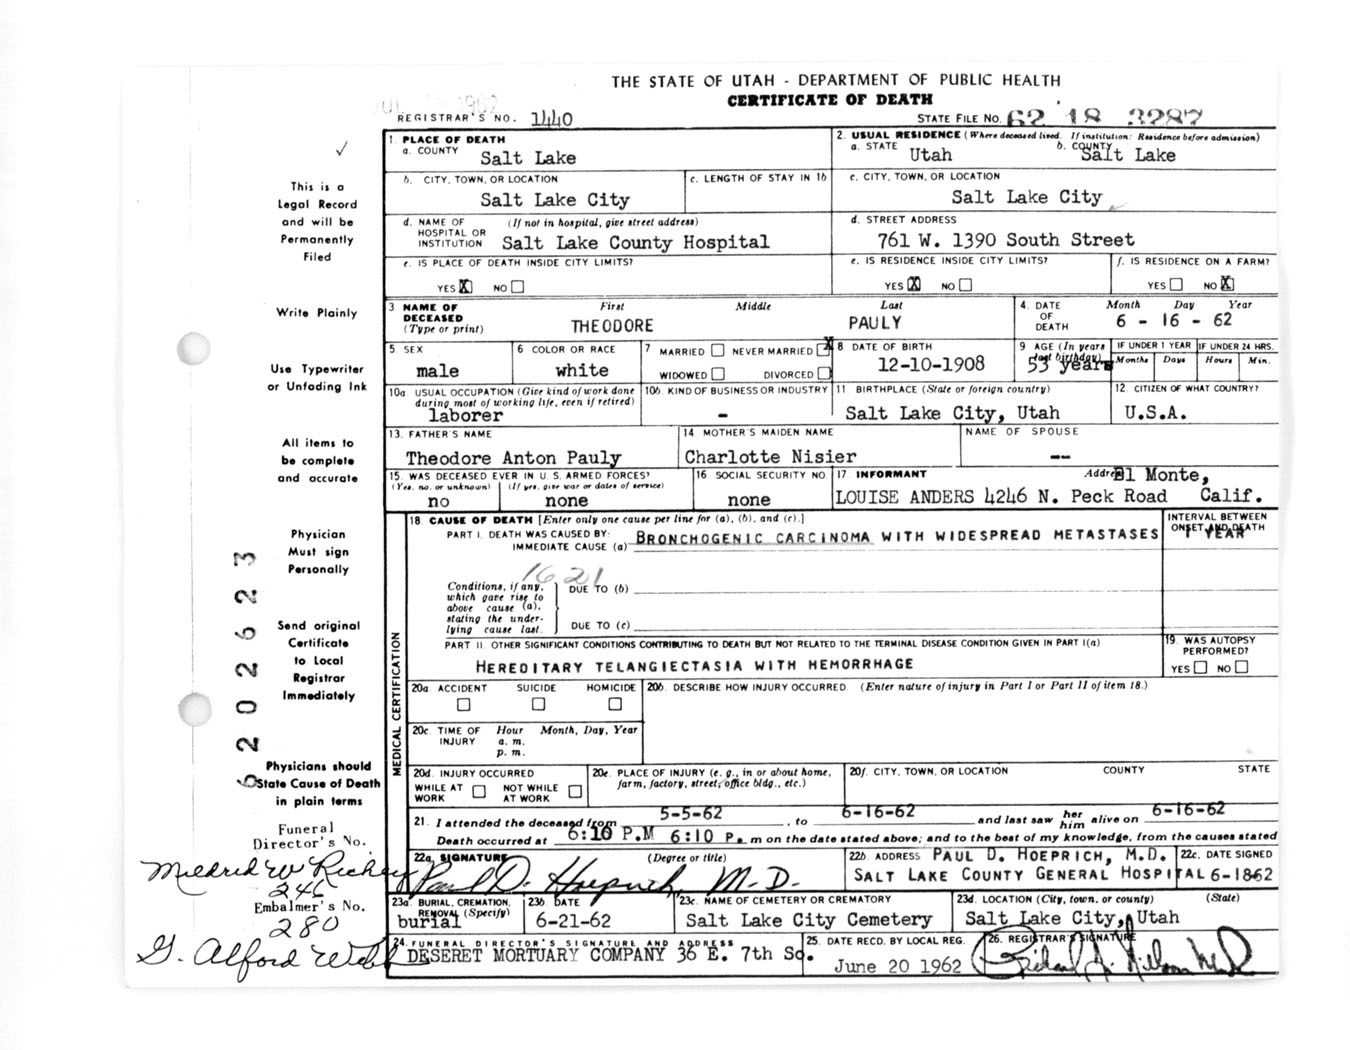 THE STATE OF UTAH - DEPARTMENT OF PUBLIC HEALTH
CERTIFICATE OF DEATH
REGISTRAR'S NO. 1440
STATE FILE NO. 62 18 3287
1. PLACE OF DEATH
a. COUNTY Salt Lake
2. USUAL RESIDENCE (Where deceased lived. If institution: Residence before admission)
a. STATE Utah b. COUNTY Salt Lake
b. CITY, TOWN, OR LOCATION Salt Lake City
c. LENGTH OF STAY IN 1b
c. CITY, TOWN, OR LOCATION Salt Lake City
d. NAME OF HOSPITAL OR INSTITUTION (If not in hospital, give street address) Salt Lake County Hospital
d. STREET ADDRESS 761 W. 1390 South Street
e. IS PLACE OF DEATH INSIDE CITY LIMITS? YES X NO
e. IS RESIDENCE INSIDE CITY LIMITS? YES X NO
f. IS RESIDENCE ON A FARM? YES NO X
3 NAME OF DECEASED (Type or print) First Middle Last
THEODORE PAULY
4. DATE OF DEATH Month Day Year
6 - 16 - 62
5. SEX male
6 COLOR OR RACE white
7 MARRIED NEVER MARRIED X
WIDOWED DIVORCED
8 DATE OF BIRTH 12-10-1908
9 AGE (In years last birthday) 53 years
IF UNDER 1 YEAR Months Days
IF UNDER 24 HRS. Hours Min.
10a USUAL OCCUPATION (Give kind of work done during most of working life, even if retired) laborer
10b. KIND OF BUSINESS OR INDUSTRY -
11. BIRTHPLACE (State or foreign country) Salt Lake City, Utah
12. CITIZEN OF WHAT COUNTRY? U.S.A.
13. FATHER'S NAME Theodore Anton Pauly
14 MOTHER'S MAIDEN NAME Charlotte Nisier
NAME OF SPOUSE --
15. WAS DECEASED EVER IN U. S. ARMED FORCES?
(Yes, no, or unknown) no
(If yes, give war or dates of service) none
16. SOCIAL SECURITY NO. none
17 INFORMANT Address El Monte,
LOUISE ANDERS 4246 N. Peck Road Calif.
18. CAUSE OF DEATH [Enter only one cause per line for (a), (b), and (c).]
INTERVAL BETWEEN ONSET AND DEATH
1 YEAR
PART I. DEATH WAS CAUSED BY:
IMMEDIATE CAUSE (a) BRONCHOGENIC CARCINOMA WITH WIDESPREAD METASTASES
1621
Conditions, if any, which gave rise to above cause (a), stating the underlying cause last.
DUE TO (b)
DUE TO (c)
PART II. OTHER SIGNIFICANT CONDITIONS CONTRIBUTING TO DEATH BUT NOT RELATED TO THE TERMINAL DISEASE CONDITION GIVEN IN PART I(a)
HEREDITARY TELANGIECTASIA WITH HEMORRHAGE
19. WAS AUTOPSY PERFORMED?
YES NO
MEDICAL CERTIFICATION
20a. ACCIDENT SUICIDE HOMICIDE
20b. DESCRIBE HOW INJURY OCCURRED. (Enter nature of injury in Part I or Part II of item 18.)
20c. TIME OF INJURY Hour Month, Day, Year
a. m.
p. m.
20d. INJURY OCCURRED
WHILE AT WORK NOT WHILE AT WORK
20e. PLACE OF INJURY (e. g., in or about home, farm, factory, street, office bldg., etc.)
20f. CITY, TOWN, OR LOCATION COUNTY STATE
21. I attended the deceased from 5-5-62, to 6-16-62 and last saw her him alive on 6-16-62
Death occurred at 6:10 P.M 6:10 P. m on the date stated above; and to the best of my knowledge, from the causes stated
22a. SIGNATURE (Degree or title)
Paul D. Hoeprich, M.D.
22b. ADDRESS PAUL D. HOEPRICH, M.D.
SALT LAKE COUNTY GENERAL HOSPITAL
22c. DATE SIGNED 6-1862
23a. BURIAL, CREMATION, REMOVAL (Specify) burial
23b. DATE 6-21-62
23c. NAME OF CEMETERY OR CREMATORY Salt Lake City Cemetery
23d. LOCATION (City, town, or county) (State)
Salt Lake City, Utah
24. FUNERAL DIRECTOR'S SIGNATURE AND ADDRESS
DESERET MORTUARY COMPANY 36 E. 7th So.
25. DATE RECD. BY LOCAL REG. June 20 1962
26. REGISTRAR'S SIGNATURE
This is a
Legal Record
and will be
Permanently
Filed
Write Plainly
Use Typewriter
or Unfading Ink
All items to
be complete
and accurate
Physician
Must sign
Personally
Send original
Certificate
to Local
Registrar
Immediately
Physicians should
State Cause of Death
in plain terms
Funeral
Director's No.
246
Embalmer's No.
280
G. Alford Webb
6202623